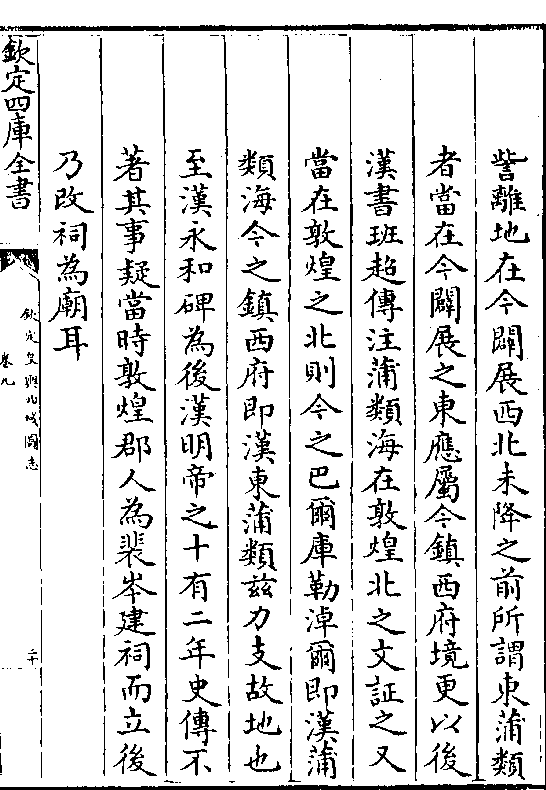 訾離地在今闢展西北未降之前所謂東蒲類
者當在今闢展之東應屬今鎮西府境更以後
漢書班超傳注蒲類海在敦煌北之文証之又
當在敦煌之北則今之巴爾庫勒淖爾即漢蒲
類海今之鎮西府即漢東蒲類兹力支故地也
至漢永和碑為後漢明帝之十有二年史傳不
著其事疑當時敦煌郡人為裴岑建祠而立後
乃改祠為廟耳
欽定四庫全書
欽定皇輿西域圖志
卷九
二十